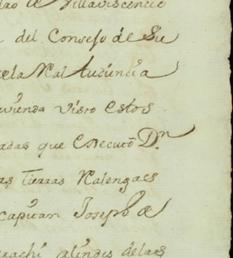 de Villaviscencio
del Consejo de Su
Real Audiencia
vienda visto estos
que executó Dn
tierras Realengas
capitan Joseph de
alindes de las